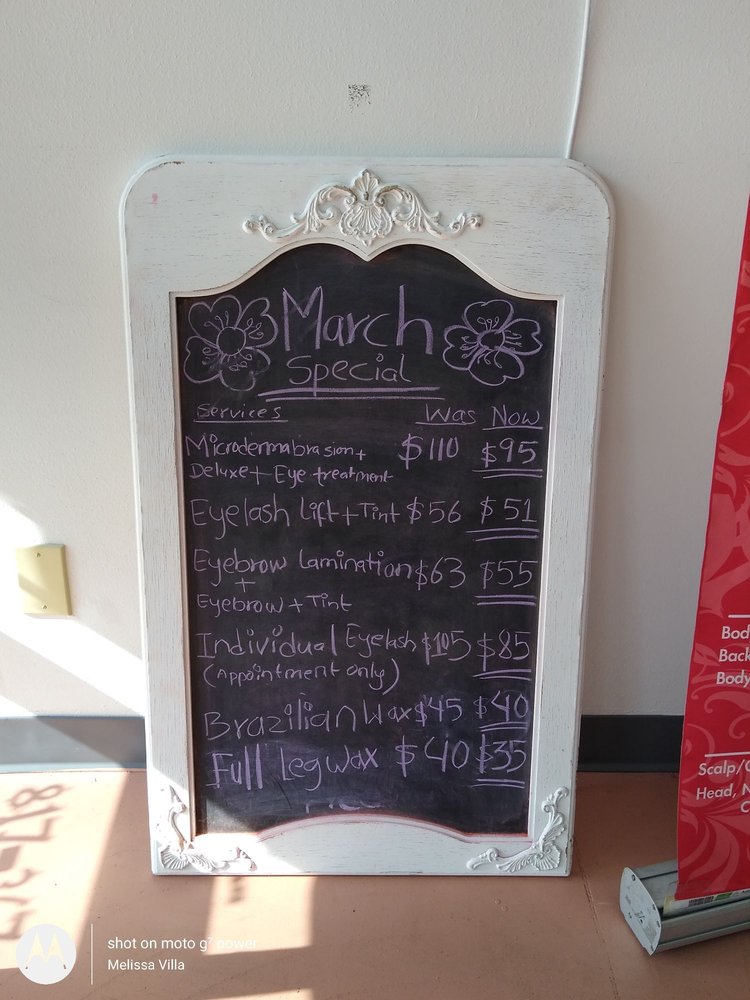 March
Special
Services Was Now
Microdermabrasion + $110 $95
Deluxe + Eye treatment
Eyelash Lift + Tint $56 $51
Eyebrow Lamination $63 $55
+
Eyebrow + Tint
Individual Eyelash $105 $85
(Appointment only)
Brazilian Wax $45 $40
Full Leg Wax $40 $35
Bod
Back
Body
Scalp/
Head, N
C
shot on moto g⁷ power
Melissa Villa